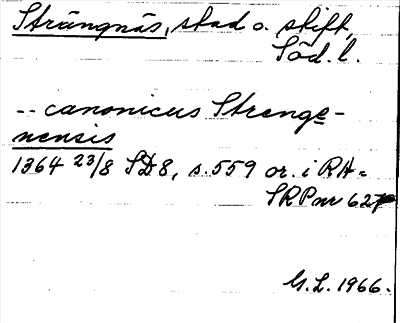 Strängnäs, stad o. stift,
Söd. l.
-- canonicus Strenge-
nensis
1364 23/8 SD8, s. 559 or. i RA =
SRP nr 627
G.L. 1966.